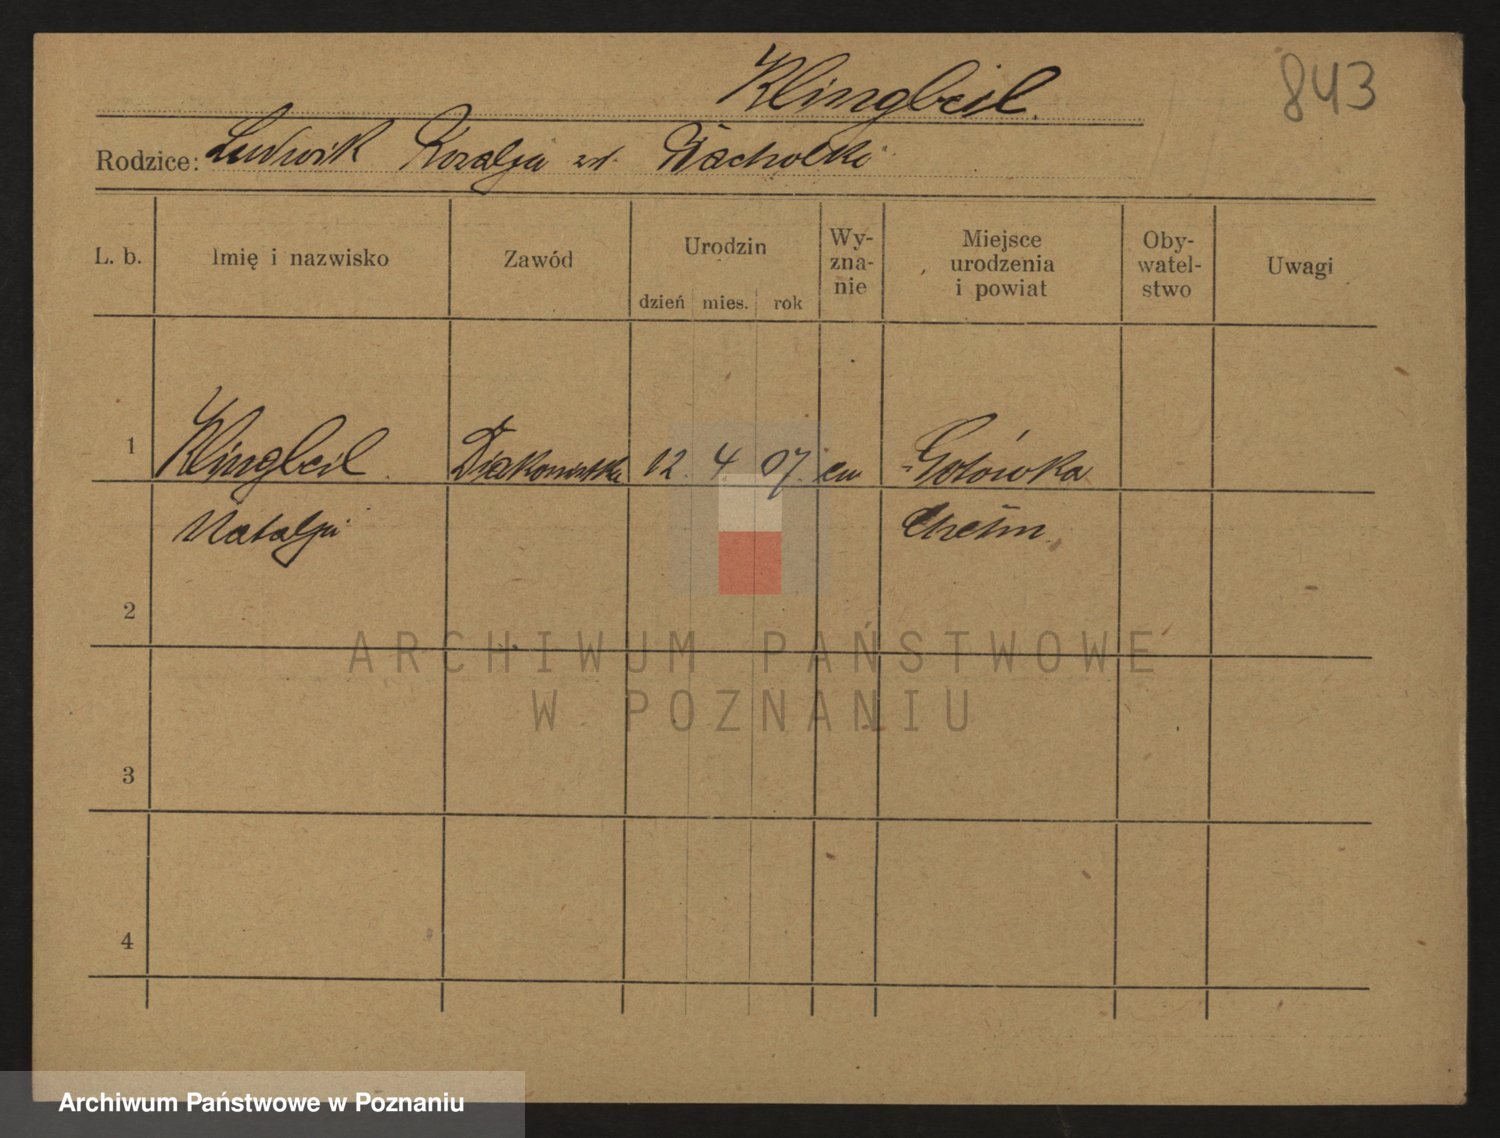 Klingbeil.
843
Rodzice: Ludwik Rozalja zd. Wacholke
L. b. Imię i nazwisko Zawód Urodzin dzień mies. rok Wy-zna-nie Miejsce urodzenia i powiat Oby-watel-stwo Uwagi
1 Klingbeil Diakonistka 12. 4. 07. ew Gotówka
Natalja Chełm
2
3
4
ARCHIWUM PAŃSTWOWE
W POZNANIU
Archiwum Państwowe w Poznaniu